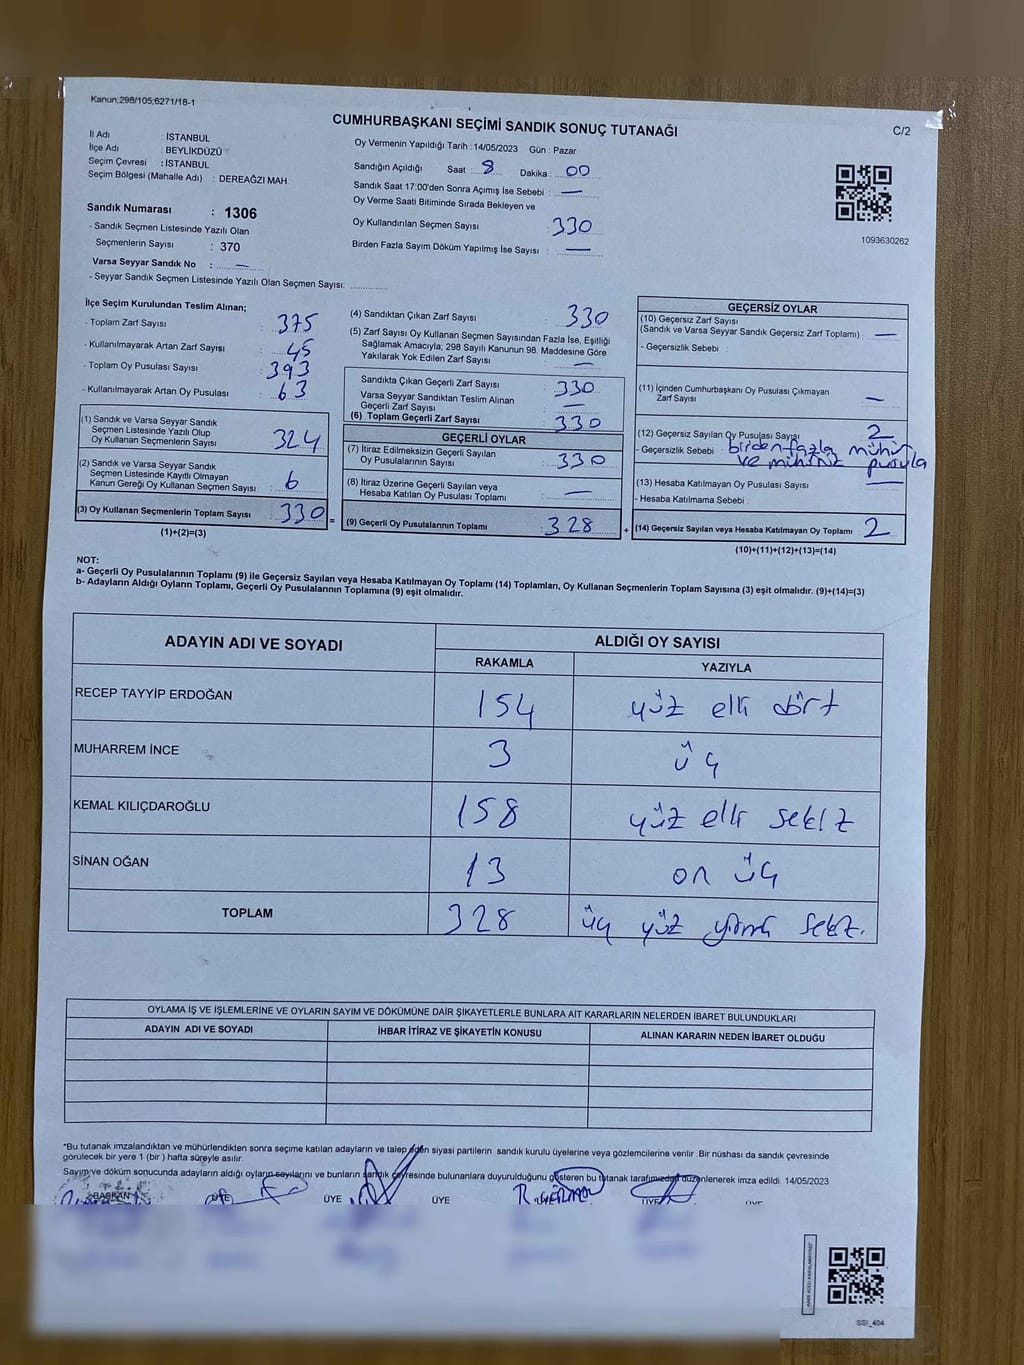 Kanun:298/105;6271/18-1
C/2
CUMHURBAŞKANI SEÇİMİ SANDIK SONUÇ TUTANAĞI
İl Adı : İSTANBUL
İlçe Adı : BEYLİKDÜZÜ
Seçim Çevresi : İSTANBUL
Seçim Bölgesi (Mahalle Adı) : DEREAĞZI MAH
Sandık Numarası : 1306
- Sandık Seçmen Listesinde Yazılı Olan
Seçmenlerin Sayısı : 370
Varsa Seyyar Sandık No : —
- Seyyar Sandık Seçmen Listesinde Yazılı Olan Seçmen Sayısı:
Oy Vermenin Yapıldığı Tarih : 14/05/2023 Gün : Pazar
Sandığın Açıldığı Saat : 8 Dakika : 00
Sandık Saat 17:00'den Sonra Açımış İse Sebebi : —
Oy Verme Saati Bitiminde Sırada Bekleyen ve
Oy Kullandırılan Seçmen Sayısı : 330
Birden Fazla Sayım Döküm Yapılmış İse Sayısı : —
1093630262
İlçe Seçim Kurulundan Teslim Alınan;
- Toplam Zarf Sayısı : 375
- Kullanılmayarak Artan Zarf Sayısı : 45
- Toplam Oy Pusulası Sayısı : 393
- Kullanılmayarak Artan Oy Pusulası : 63
(1) Sandık ve Varsa Seyyar Sandık
Seçmen Listesinde Yazılı Olup
Oy Kullanan Seçmenlerin Sayısı : 324
(2) Sandık ve Varsa Seyyar Sandık
Seçmen Listesinde Kayıtlı Olmayan
Kanun Gereği Oy Kullanan Seçmen Sayısı : 6
(3) Oy Kullanan Seçmenlerin Toplam Sayısı : 330 =
(1)+(2)=(3)
(4) Sandıktan Çıkan Zarf Sayısı : 330
(5) Zarf Sayısı Oy Kullanan Seçmen Sayısından Fazla İse, Eşitliği
Sağlamak Amacıyla; 298 Sayılı Kanunun 98. Maddesine Göre
Yakılarak Yok Edilen Zarf Sayısı : —
Sandıkta Çıkan Geçerli Zarf Sayısı : 330
Varsa Seyyar Sandıktan Teslim Alınan
Geçerli Zarf Sayısı : —
(6) Toplam Geçerli Zarf Sayısı : 330
GEÇERLİ OYLAR
(7) İtiraz Edilmeksizin Geçerli Sayılan
Oy Pusulalarının Sayısı : 330
(8) İtiraz Üzerine Geçerli Sayılan veya
Hesaba Katılan Oy Pusulası Toplamı : —
(9) Geçerli Oy Pusulalarının Toplamı : 328 +
GEÇERSİZ OYLAR
(10) Geçersiz Zarf Sayısı
(Sandık ve Varsa Seyyar Sandık Geçersiz Zarf Toplamı) : —
- Geçersizlik Sebebi :
(11) İçinden Cumhurbaşkanı Oy Pusulası Çıkmayan
Zarf Sayısı : —
(12) Geçersiz Sayılan Oy Pusulası Sayısı : 2
- Geçersizlik Sebebi : birden fazla mühür
ve mühürsüz pusula
(13) Hesaba Katılmayan Oy Pusulası Sayısı : —
- Hesaba Katılmama Sebebi :
(14) Geçersiz Sayılan veya Hesaba Katılmayan Oy Toplamı : 2
(10)+(11)+(12)+(13)=(14)
NOT:
a- Geçerli Oy Pusulalarının Toplamı (9) ile Geçersiz Sayılan veya Hesaba Katılmayan Oy Toplamı (14) Toplamları, Oy Kullanan Seçmenlerin Toplam Sayısına (3) eşit olmalıdır. (9)+(14)=(3)
b- Adayların Aldığı Oyların Toplamı, Geçerli Oy Pusulalarının Toplamına (9) eşit olmalıdır.
ADAYIN ADI VE SOYADI ALDIĞI OY SAYISI
RAKAMLA YAZIYLA
RECEP TAYYİP ERDOĞAN 154 yüz elli dört
MUHARREM İNCE 3 üç
KEMAL KILIÇDAROĞLU 158 yüz elli sekiz
SİNAN OĞAN 13 on üç
TOPLAM 328 üç yüz yirmi sekiz.
OYLAMA İŞ VE İŞLEMLERİNE VE OYLARIN SAYIM VE DÖKÜMÜNE DAİR ŞİKAYETLERLE BUNLARA AİT KARARLARIN NELERDEN İBARET BULUNDUKLARI
ADAYIN ADI VE SOYADI İHBAR İTİRAZ VE ŞİKAYETİN KONUSU ALINAN KARARIN NEDEN İBARET OLDUĞU
*Bu tutanak imzalandıktan ve mühürlendikten sonra seçime katılan adayların ve talep eden siyasi partilerin sandık kurulu üyelerine veya gözlemcilerine verilir. Bir nüshası da sandık çevresinde
görülecek bir yere 1 (bir) hafta süreyle asılır.
Sayım ve döküm sonucunda adayların aldığı oyların sayılarını ve bunların sandık çevresinde bulunanlara duyurulduğunu gösteren bu tutanak tarafımızdan düzenlenerek imza edildi. 14/05/2023
BAŞKAN ÜYE ÜYE ÜYE ÜYE
SSI_404